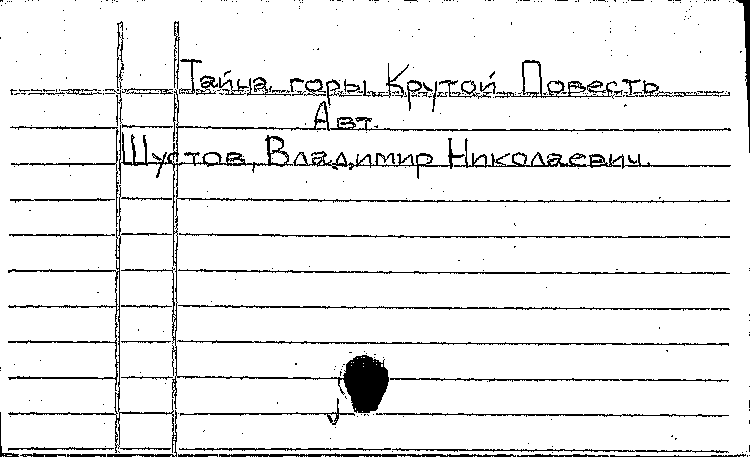 Тайна горы Крутой Повесть
Авт.
Шустов, Владимир Николаевич.